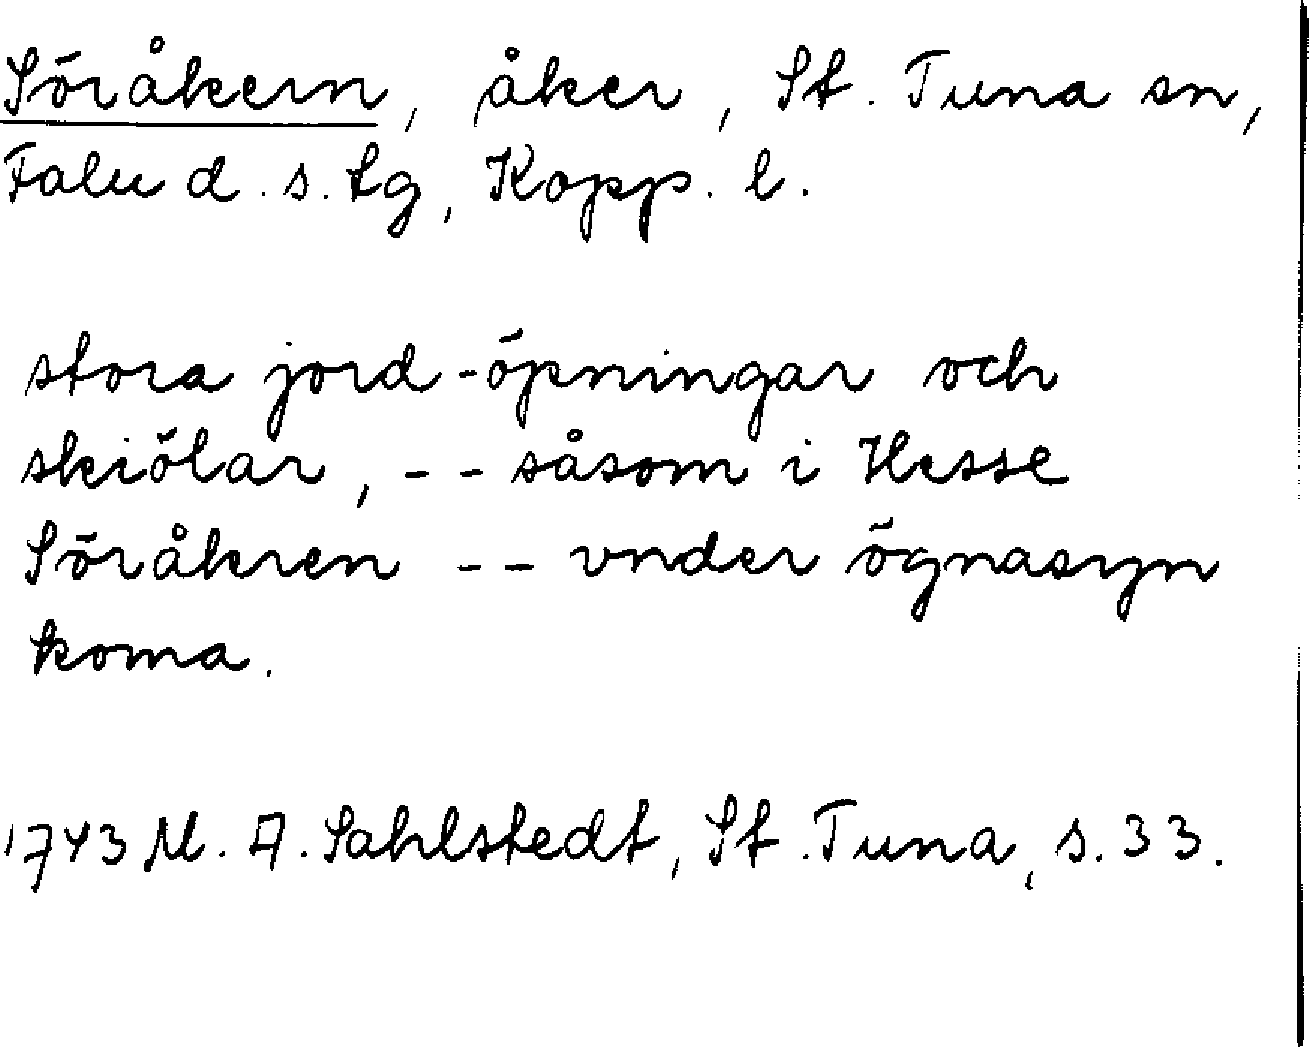 Söråkern, åker, St. Tuna sn,
Falu d. s. tg, Kopp. l.
stora jord-öpningar och
skiölar, -- såsom i Hesse
Söråkren -- vnder ögnasyn
koma.
1743 M. A. Sahlstedt, St. Tuna, s. 33.